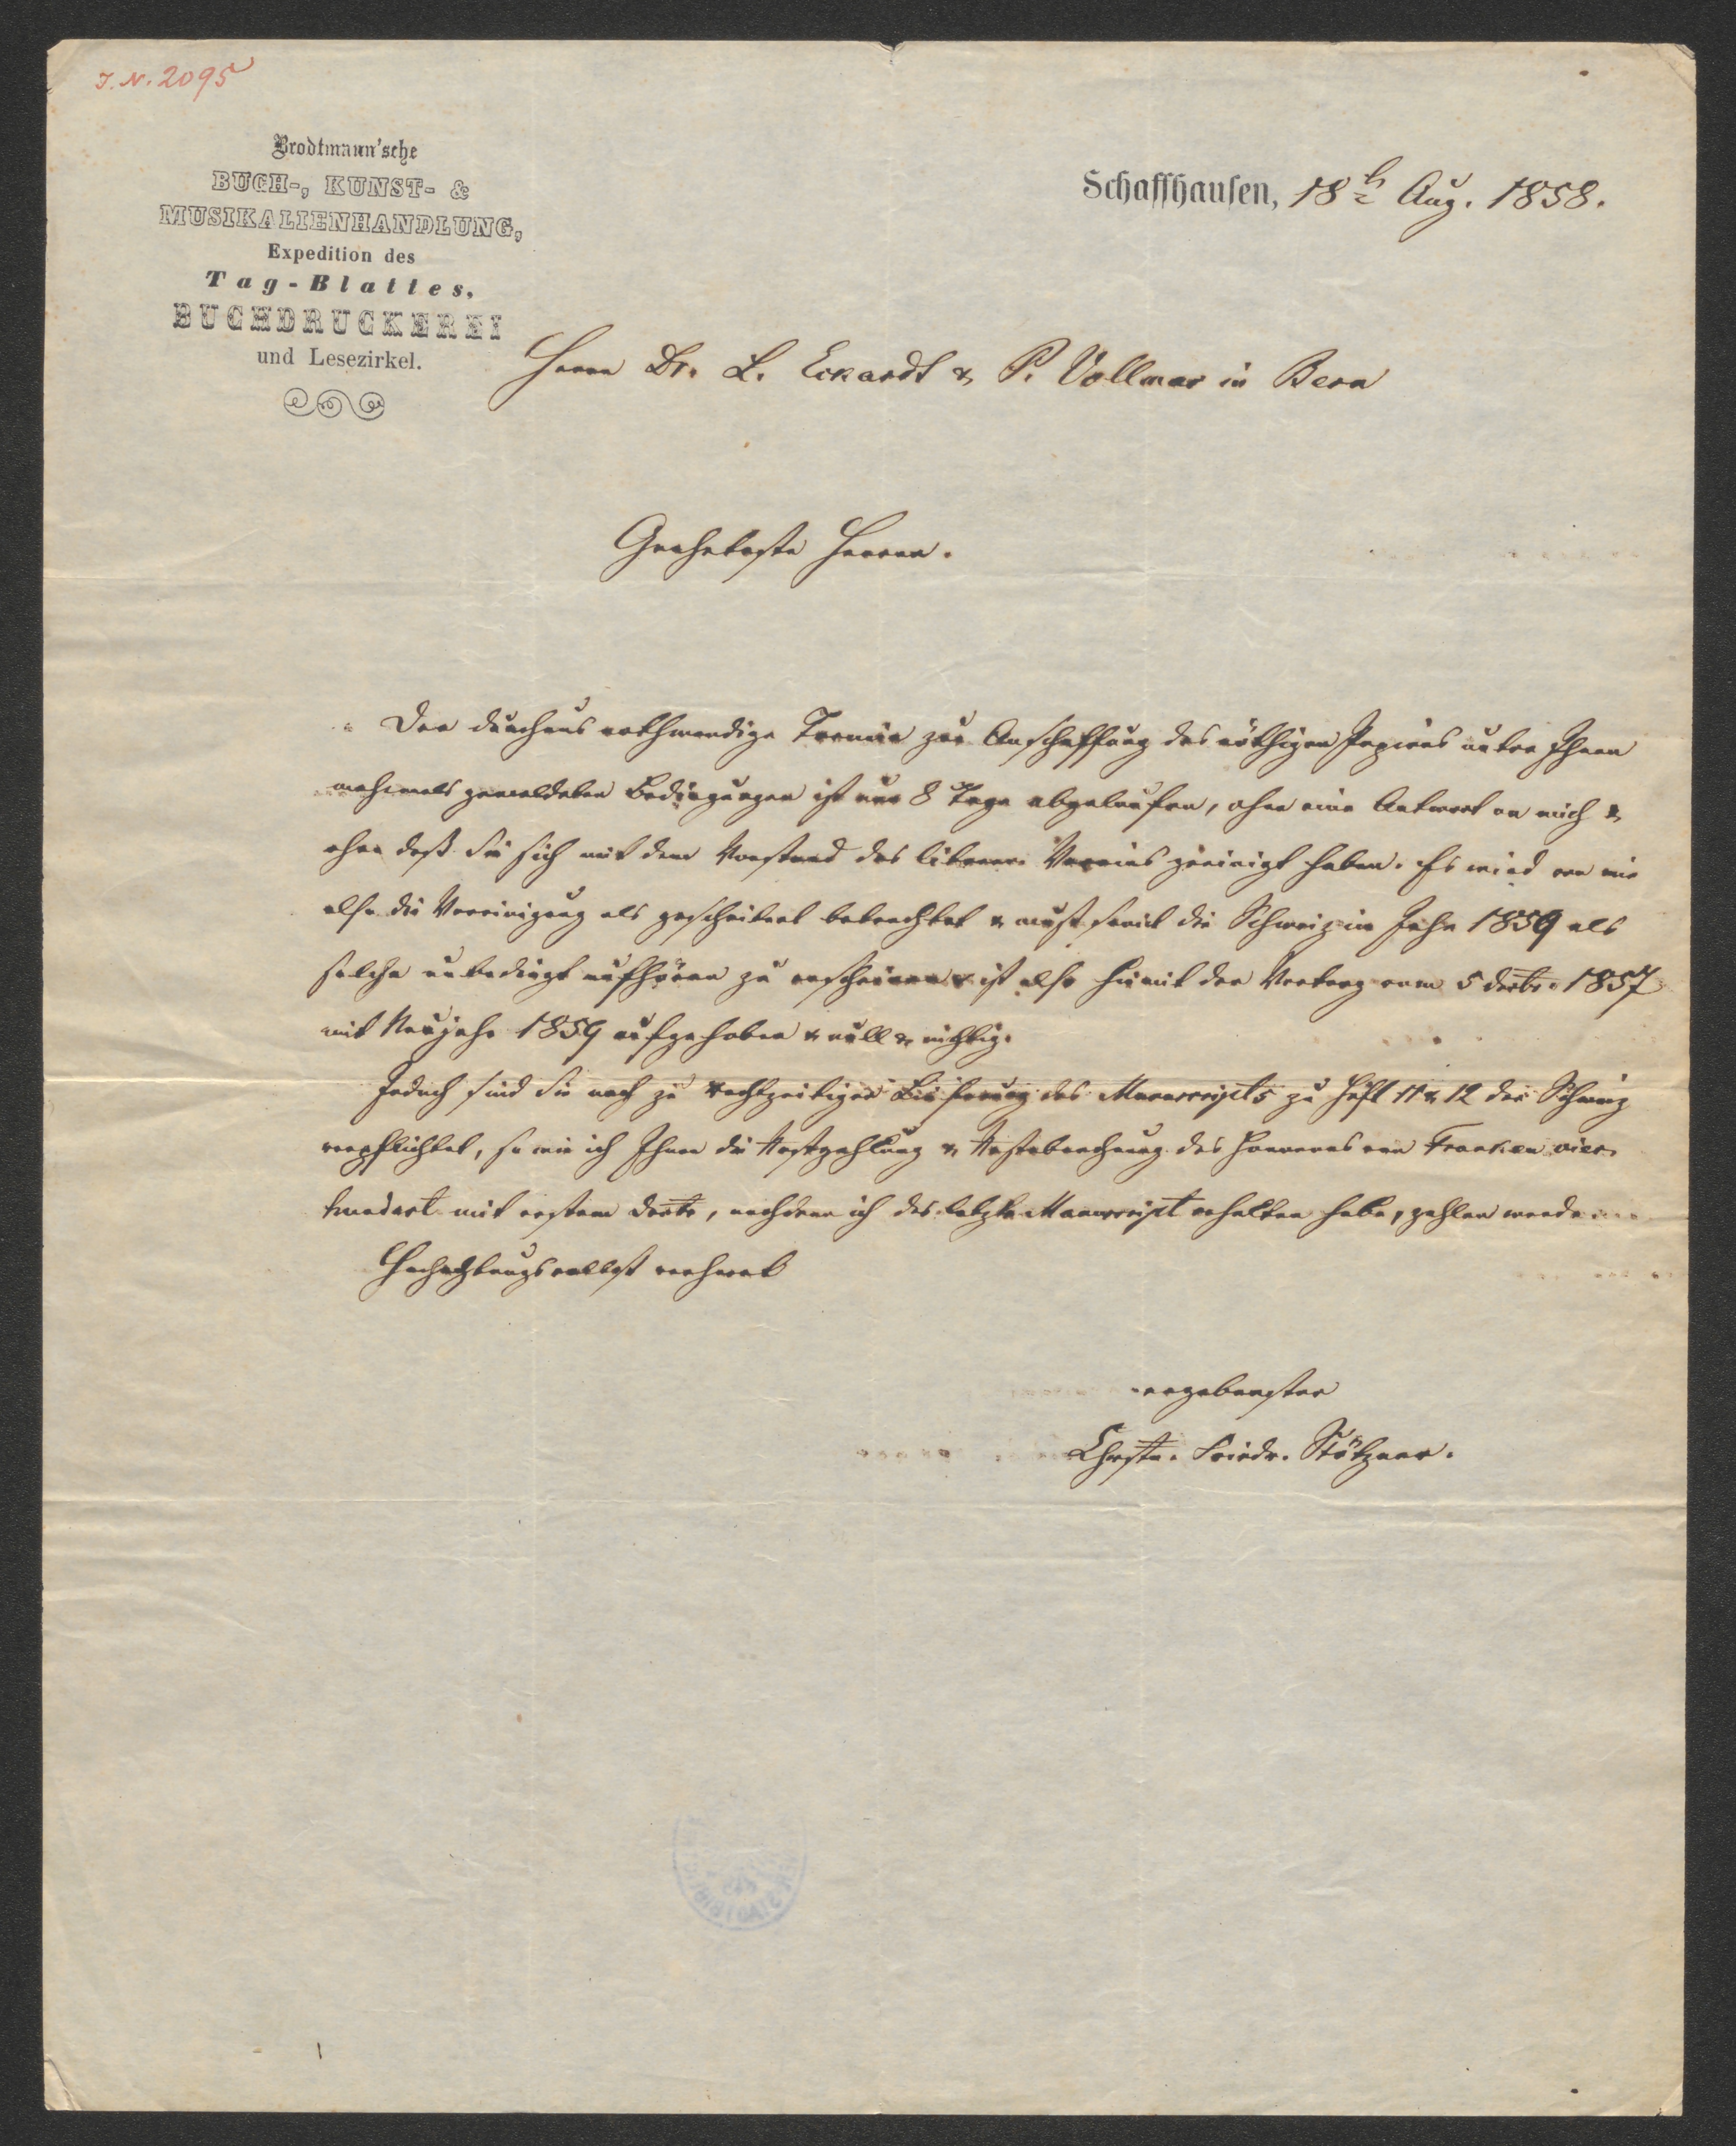 J. N. 2095
Brodtmann'sche
BUCH-, KUNST- &
MUSIKALIENHANDLUNG,
Expedition des
Tag-Blattes,
BUCHDRUCKEREI
und Lesezirkel.
Schaffhausen, 18t Aug. 1858.
Herrn Dr. L. Eckardt & P. Vollmar in Bern
Geehrteste Herren.
Der durchaus nothwendige Termin zur Anschaffung des nöthigen Papieres unter Ihnen
mehrmals gemeldeten Bedingungen ist nun 8 Tage abgelaufen, ohne eine Antwort an mich &
ohne daß Sie sich mit dem Vorstand des literar. Vereins geeinigt haben. Es wird von mir
also die Vereinigung als gescheitert betrachtet & muß somit die Schweiz im Jahr 1859 als
solche unbedingt aufhören zu erscheinen & ist also hiemit der Vertrag vom 5 Decbr. 1857
mit Neujahr 1859 aufgehoben & null & nichtig.
Jedoch sind Sie noch zu rechtzeitiger Lieferung des Manuscripts zu Heft 11 & 12 der Schweiz
verpflichtet, so wie ich Ihnen die Restzahlung & des Honorares von Franken vier
hundert mit erstem Decbr, nachdem ich das letzte Manuscript erhalten habe, zahlen werde.
Hochachtungsvollst verharrt
ergebenster
Christn. Friedr. Stötzner.